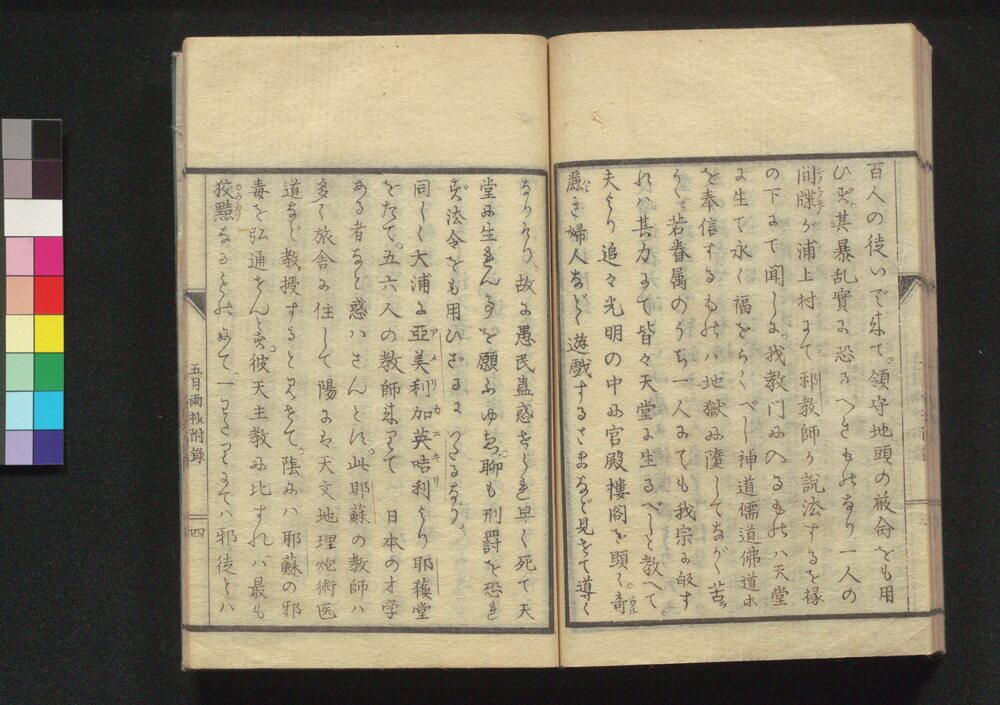 百人の徒いで来て。領守地頭の厳命をも用
ひず。其暴乱實に恐るべきものなり一人の
間牒が浦上村にて邪教師が説法するを椽
の下にて聞しに。我教門に入るものハ天堂
に生て永く福をうくべし神道儒道佛道ホ
を奉信するものハ地獄に墮してながく苦ヲ
うく若眷属のうち一人にても我宗に皈す
れハ其力にて皆々天堂に生るべしと教へて
夫より追々光明の中に宮殿樓閣を顕し。奇
麗き婦人など遊戯するさまなど見せて導く
なりとぞ。故に愚民蟲惑せられ早く死て天
堂に生れんことを願ふゆゑ。聊も刑罸を恐れ
ず法令をも用ひざるにいたるなり。
同しく大浦に亞美利加英咭利より耶蘓堂
をたて。五六人の教師来りて日本のオ学
ある者など惑ハさんとす。此耶蘇の教師ハ
多く旅舎に住して陽にハ天文地理炮術医
道など教授すると見せて。隂にハ耶蘇の邪
毒を弘通せんとす。彼天主教に比すれハ最も
狡黠なるものにて一ト
五月雨抄附錄
四